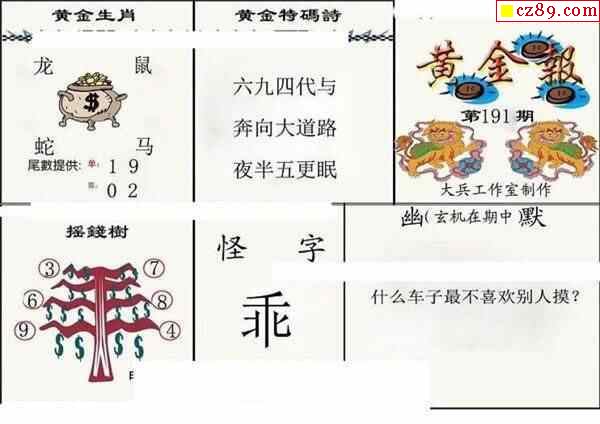 cz89.com
黄金生肖
龙 鼠
蛇 马
尾數提供: 单: 1 9
0 2
黄金特碼詩
六九四代与
奔向大道路
夜半五更眠
黄金報
第191期
大兵工作室制作
摇錢樹
③ ⑦
⑥ ⑧
⑨ ④
怪 字
乖
幽(玄机在期中)默
什么车子最不喜欢别人摸?